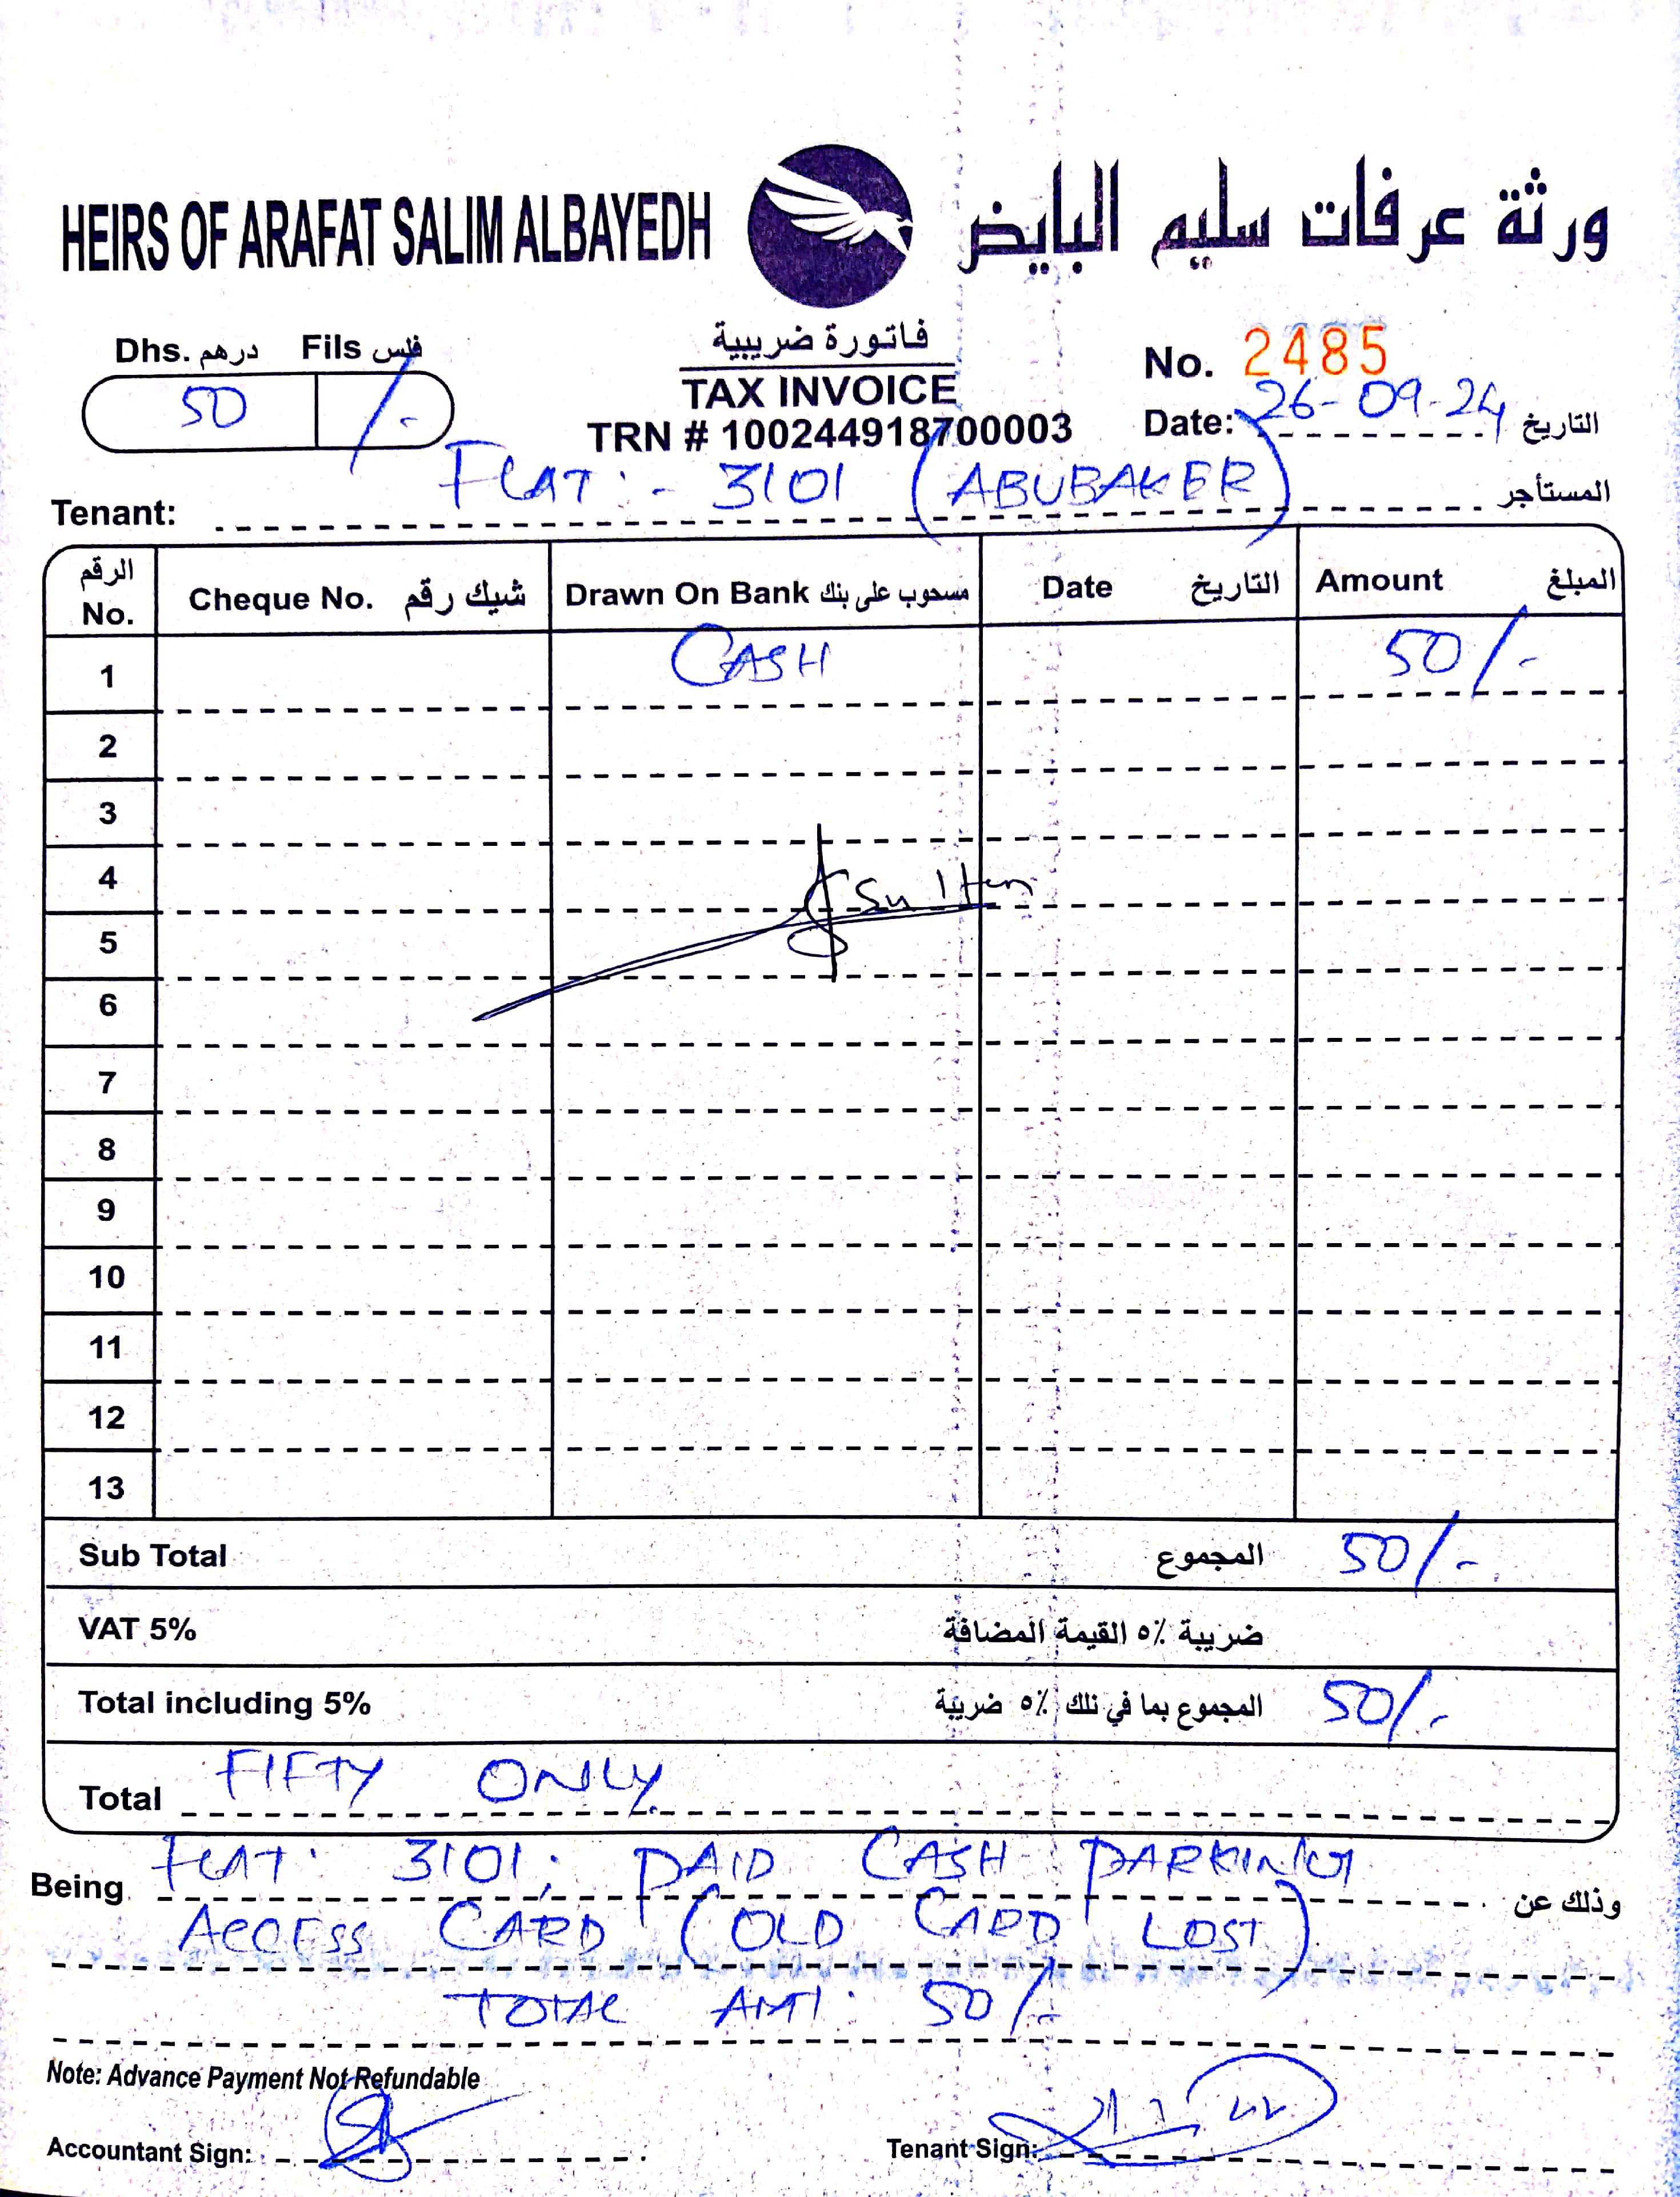 HEIRS OF ARAFAT SALIM ALBAYEDH ورثة عرفات سليم البايض
Dhs. درهم Fils فلس
50 /-
فاتورة ضريبية
TAX INVOICE
TRN # 100244918700003
No. 2485
Date: 26-09-24 التاريخ
Tenant: FLAT:- 3101 (ABUBAKER) المستأجر
الرقم No. Cheque No. شيك رقم Drawn On Bank مسحوب على بنك Date التاريخ Amount المبلغ
1 CASH 50/-
2
3
4 Sultan
5
6
7
8
9
10
11
12
13
Sub Total المجموع 50/-
VAT 5% ضريبة ٥٪ القيمة المضافة
Total including 5% المجموع بما في تلك ٥٪ ضريبة 50/-
Total FIFTY ONLY.
Being FLAT: 3101; PAID CASH PARKING وذلك عن
ACCESS CARD (OLD CARD LOST)
TOTAL AMT: 50/-
Note: Advance Payment Not Refundable
Accountant Sign: Tenant Sign: